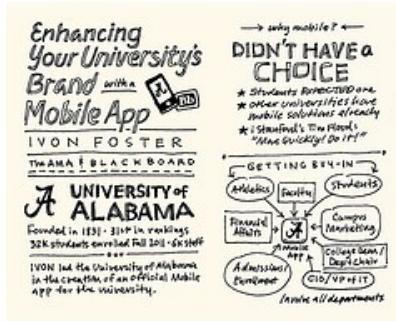 Enhancing
Your University's
Brand with a
Mobile App
IVON FOSTER
BLACKBOARD
A UNIVERSITY of
ALABAMA
Founded in 1831 · 31st in rankings
32K students enrolled Fall 2011 · 6K staff
IVON led the University of Alabama
in the creation of an official Mobile
app for the university.
why mobile?
DIDN'T HAVE a
CHOICE
★ Students EXPECTED one
★ other universities have
mobile solutions already
★ iStanford's Tim Flood:
"Move Quickly! Do it!"
GETTING BUY-IN
Athletics
Faculty
Students
Financial
Affairs
A
Mobile
App
Campus
Marketing
College Dean/
Dept chair
Admissions/
Enrollment
CIO/VP of IT
Involve all departments